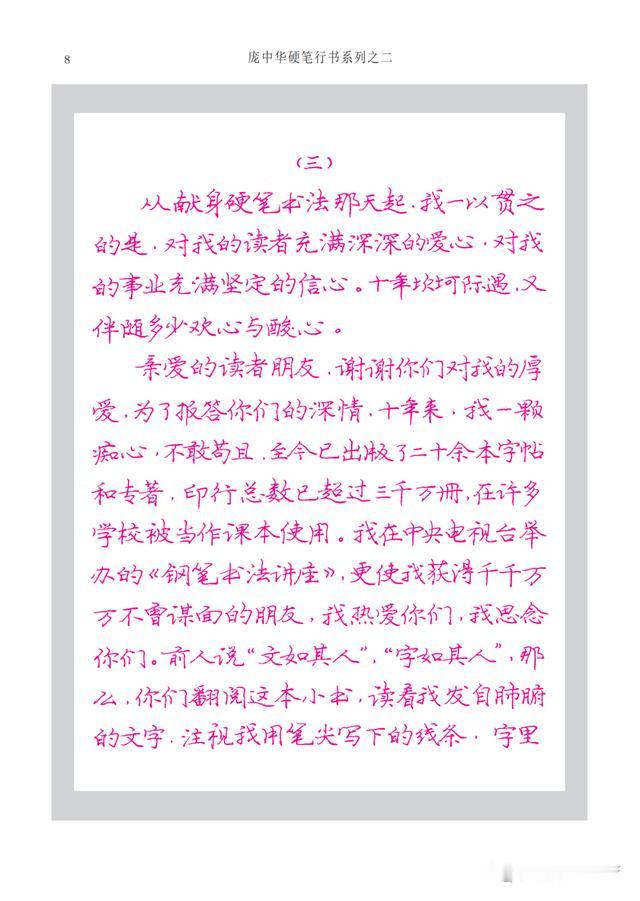 8
庞中华硬笔行书系列之二
（三）
从献身硬笔书法那天起，我一以贯之
的是，对我的读者充满深深的爱心，对我
的事业充满坚定的信心。十年坎坷际遇，又
伴随多少欢心与酸心。
亲爱的读者朋友，谢谢你们对我的厚
爱，为了报答你们的深情，十年来，我一颗
痴心，不敢苟且，至今已出版了二十余本字帖
和专著，印行总数已超过三千万册，在许多
学校被当作课本使用。我在中央电视台举
办的《钢笔书法讲座》，更使我获得千千万
万不曾谋面的朋友，我热爱你们，我思念
你们。前人说“文如其人”，“字如其人”，那
么，你们翻阅这本小书，读着我发自肺腑
的文字，注视我用笔尖写下的线条，字里